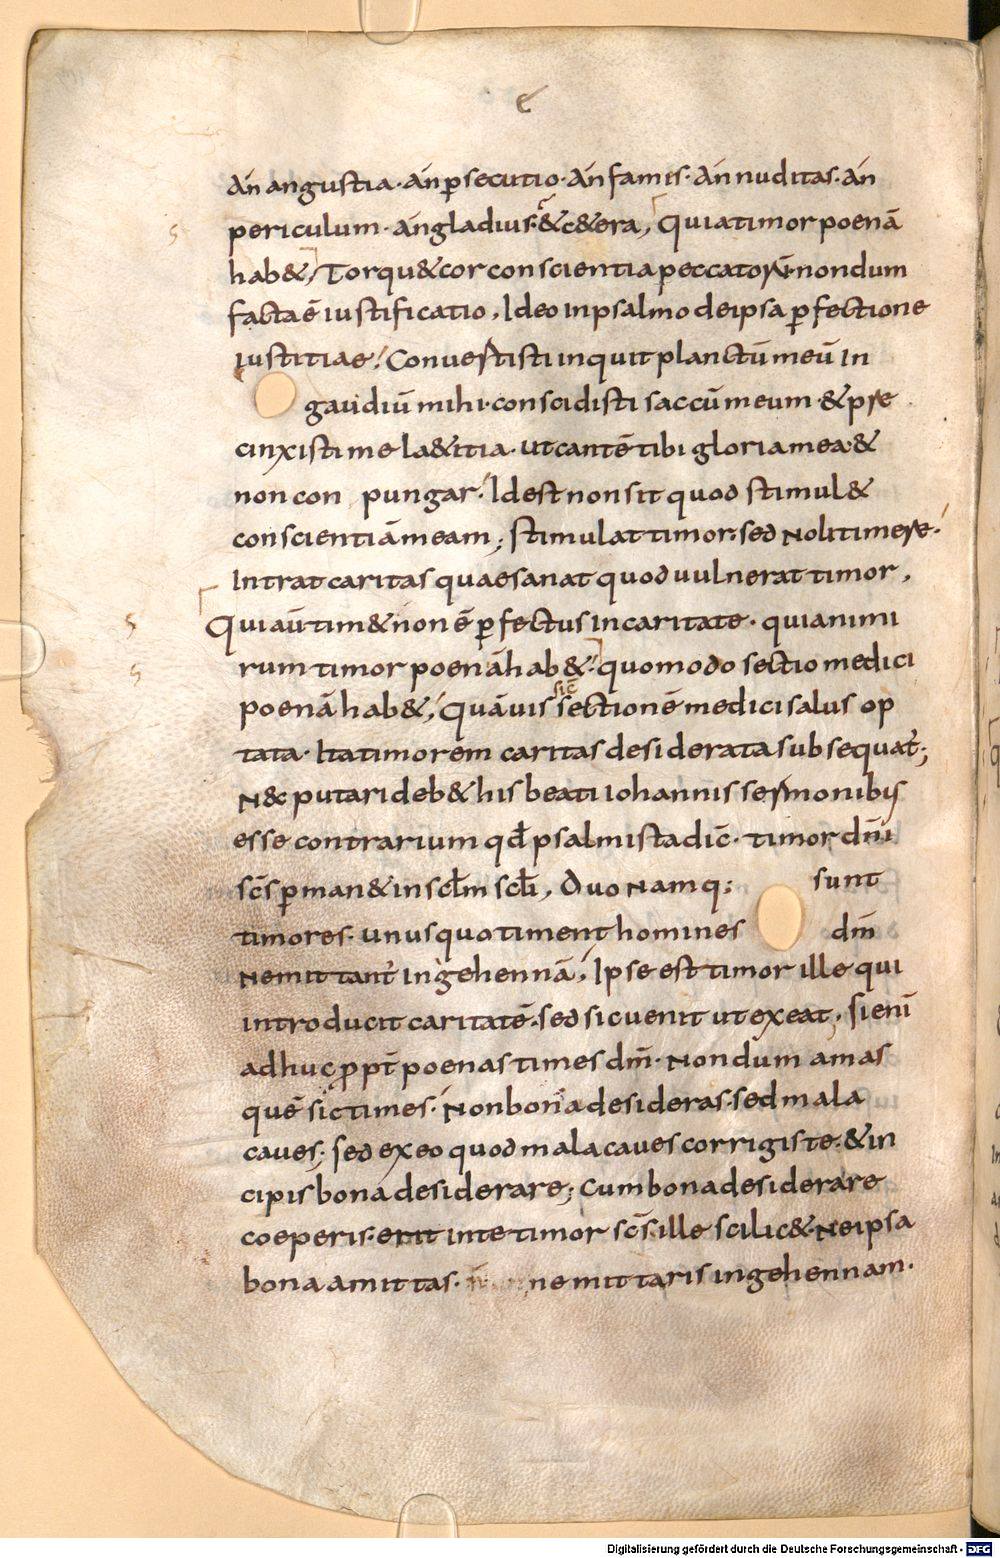 e
án angustia · án ꝑsecutio · án famis · án nuditas · án
periculum · án gladius · & c&era, Quia timor poenā
hab&, Torqu& cor conscientia peccatoꝝ · nondum
facta ē iustificatio, Ideo in psalmo de ipsa ꝑfectione
iustitiae, Convertisti inquit planctū meū in
gaudiū mihi · conscidisti saccū meum · & pre
cinxisti me la&itia · ut cantē tibi gloria mea · &
non con pungar · Id est non sit quod stimul&
conscientiā meam; stimulat timor · sed noli timere ·
Intrat caritas quae sanat quod uulnerat timor,
Qui aū tim& non ē ꝑfectus in caritate · quia nimi
rum timor poenā hab& · quomodo sectio medici
poenā hab&, Quāuis sectionē medici salus op
sic̄
tata · Ita timorem caritas desiderata subsequat̄;
N&c putari deb& his beati iohannis sermonibꝫ
esse contrarium qđ psalmista dic̄ · timor dn̄i
sc̄s ꝑman& in scl̄m scl̄i, Duo namq; sunt
timores · unus quo timent homines dm̄
ne mittant̄ in gehennā, Ipse est timor ille qui
introducit caritatē · sed sic uenit ut exeat, si eni
adhuc ꝓpt̄ poenas times dm̄ · Nondum amas
quē sic times · Non bona desideras · sed mala
caues; sed ex eo quod mala caues corrigis te · & in
cipis bona desiderare; Cum bona desiderare
coeperis · erit in te timor sc̄s · ille scilic& · Ne ipsa
bona amittas · ne mittaris in gehennam ·
Digitalisierung gefördert durch die Deutsche Forschungsgemeinschaft - DFG